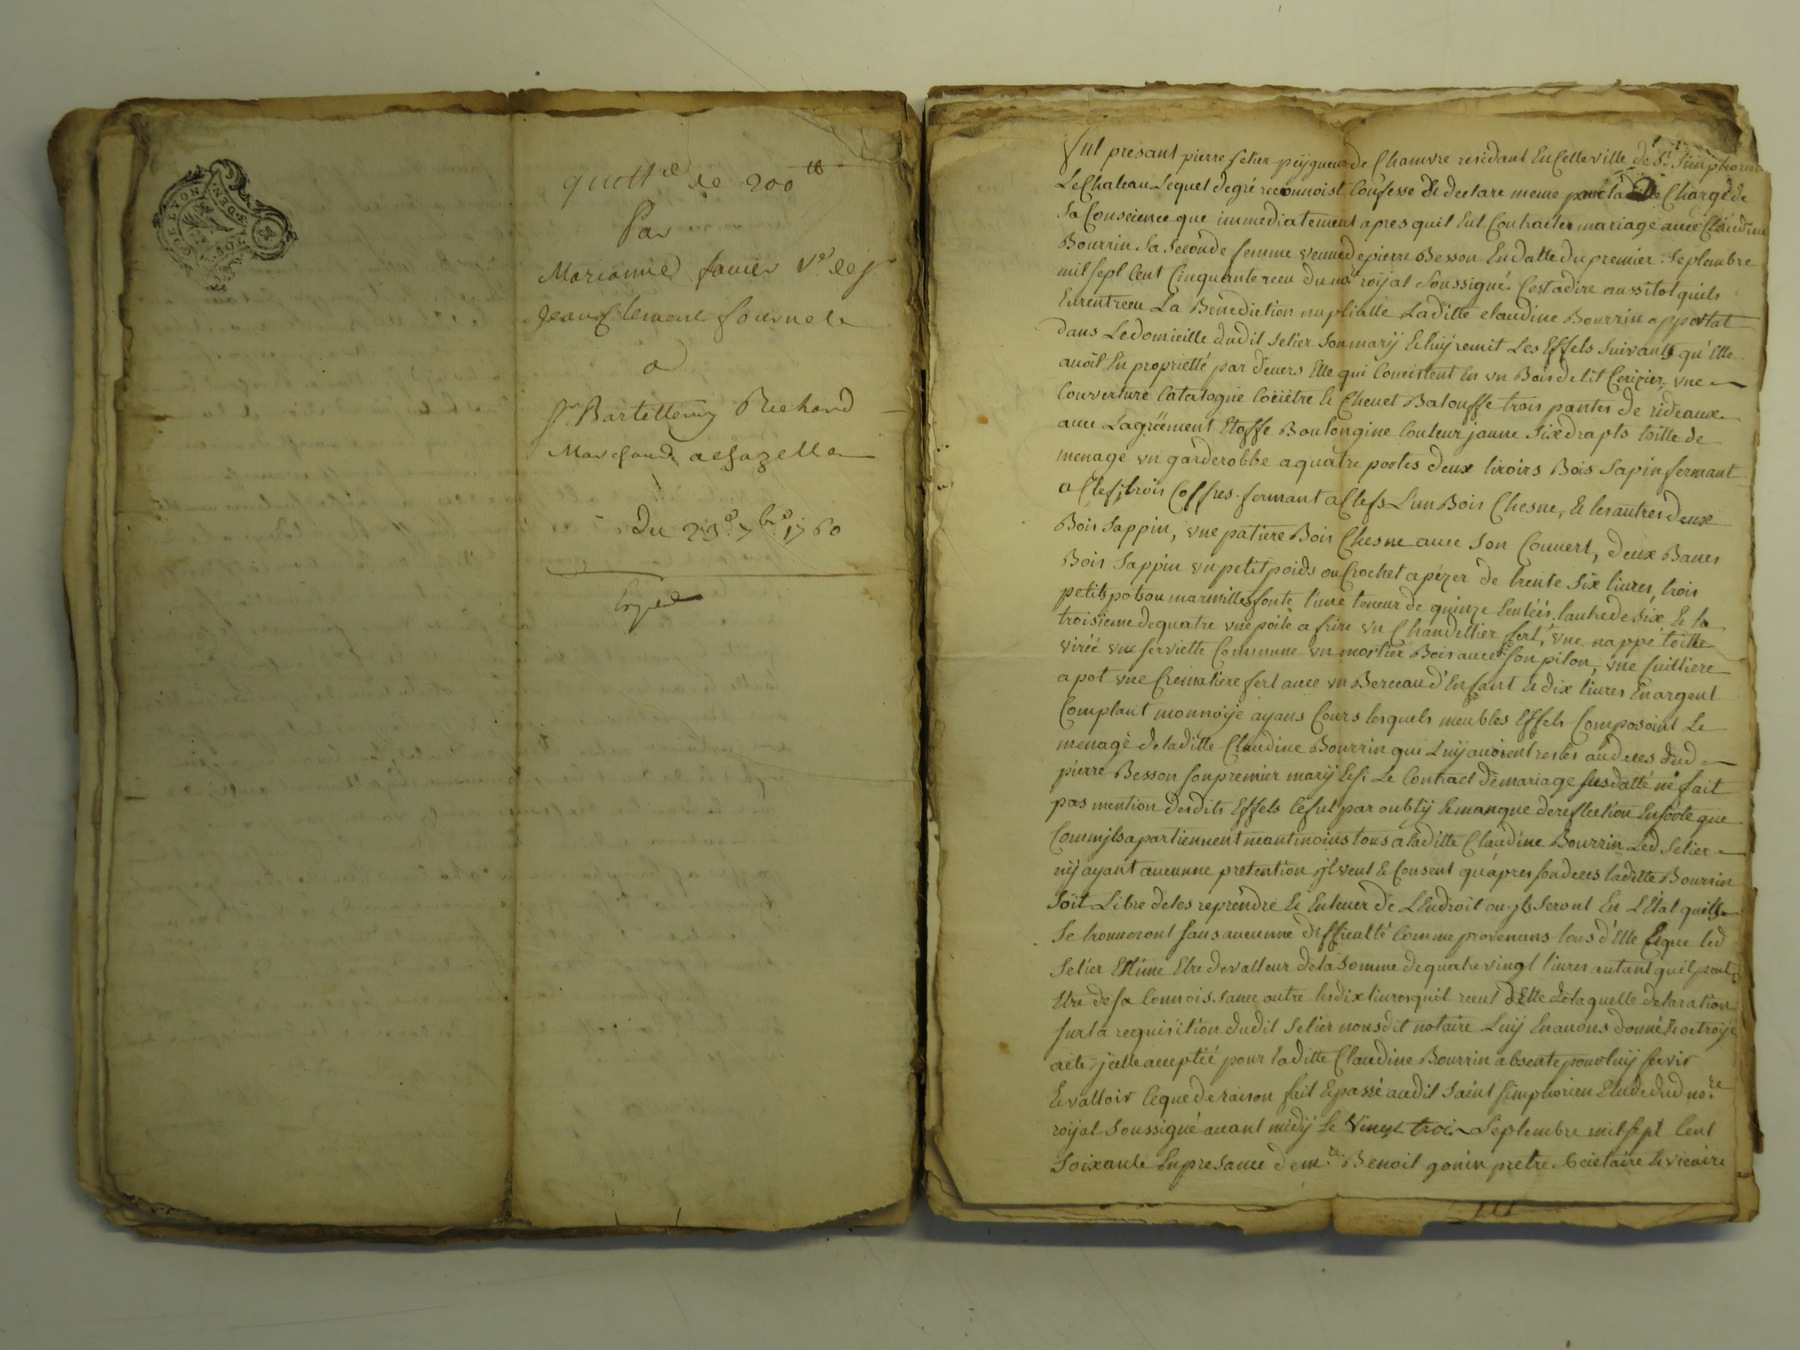 GEN. DE LYON
quitt.ce de 200 tt
Par
Marianne favier V.e de s.r
Jean Clement fournel
a
s.r Bartellemy Richond
Marchand a chazelle
Du 23.e 7bre 1760
Expée
fut present pierre selier peygneur de Chamvre residant En Cette ville de St. Simphorien
Le Chateau Lequel de gré reconnoist Confesse et declare meme pour la Charge de
sa Conscience que immediatement apres quil Eut Contracter mariage avec Claudine
Bourrin sa seconde femme veuve de pierre Besson En datte du premier Septembre
mil sept Cent Cinquante receu du no.re roÿal soussigné C'est a dire aussitot quils
Eurent receu La Benediction nuptialle Laditte claudine Bourrin apportat
dans Le domicille dudit selier son marÿ et luÿ remit Les Effets suivants qu'elle
avoit En proprietté par devers Elle qui Concistent En un Bois de lit Cerizier, une
Couverture Catalogne Coëitre et Chevet Balouffe trois pantes de rideaux
avec L'agréement Etoffe Boulongine Couleur jaune six drapts toille de
menage un garderobbe a quatre portes deux tiroirs Bois sapin fermant
a Clef, trois Coffres fermant a Clefs L'un Bois Chesne, et les autres deux
Bois sappin, une patiere Bois Chesne avec son Couvert, deux Bancs
Bois sappin un petit poids ou Crochet a pézer de trente six livres, trois
petits pots ou marmittes fonte l'une teneur de quinze Eculées, l'autre de six, et la
troisieme de quatre une poile a frire un Chandellier fert, une nappe toille
virée une serviette Commune un mortier Bois avec son pilon, une Cuilliere
a pot une Cremaliere fert avec un Berceau d'Enfant et dix livres En argent
Comptant monnoÿe ayans Cours lesquels meubles Effets Composoint Le
menage de laditte Claudine Bourrin qui Luÿ avoient restés au deces dud.
pierre Besson son premier marÿ et si Le Contract de mariage susdatté ne fait
pas mention desdits Effets Ce fut par oublÿ et manque de reflection Ensorte que
Comm'ils apartiennent neantmoins tous a laditte Claudine Bourrin Led. Selier
nÿ ayant aucunne pretention jl veut et Consent qu'apres son deces laditte Bourrin
soit Libre de les reprendre et Enlever de L'Endroit ou jls seront En L'Etat quils
se trouveront sans aucunne difficulté Comme provenans tous d'Elle et que led.
Selier Estime Etre de valleur de la somme de quatre vingt livres autant quil peut
Etre de sa Connoissance outre les dix livres quil receut d'Elle de laquelle declaration
sur la requisition dudit Selier nousdit notaire Luÿ En avons donné et octroÿé
acte jcelle acceptée pour laditte Claudine Bourrin absente pour luÿ servir
Et valloir Ce que de raison fait et passé audit Saint simphorien Etude dud. no.re
roÿal soussigné avant midÿ le vingt trois Septembre mil sept Cent
soixante En presance de m.re Benoit gonin pretre socictaire et vicaire